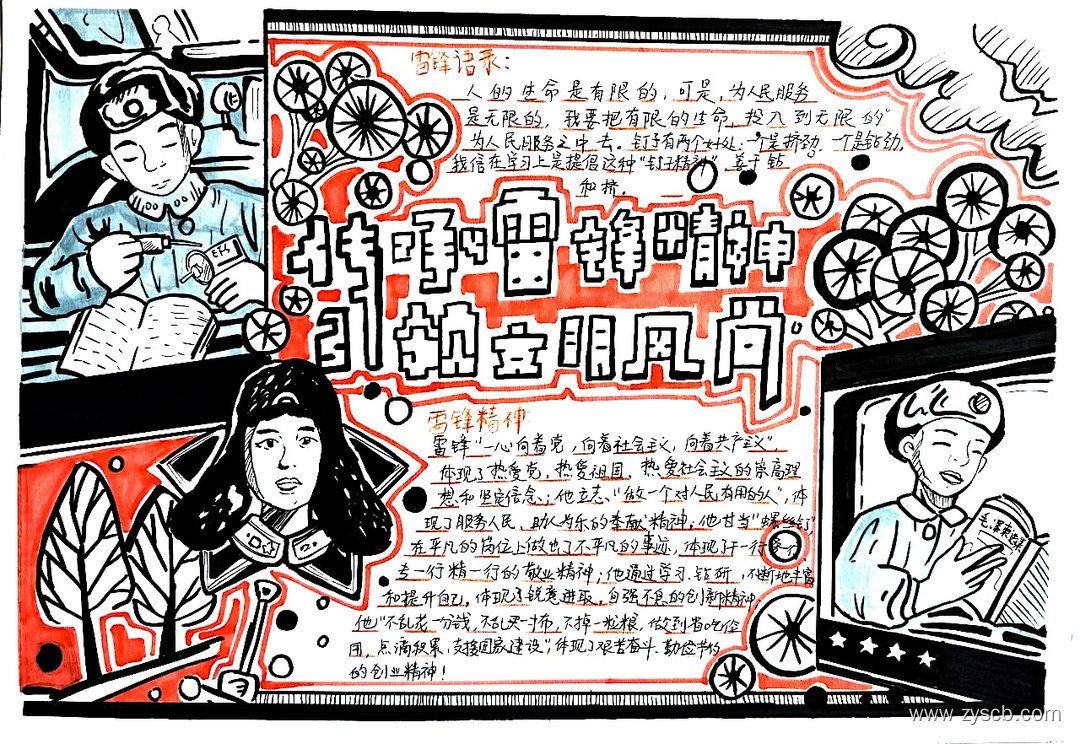 雷锋语录：
人的生命是有限的，可是，为人民服务
是无限的，我要把有限的生命，投入到无限的
为人民服务之中去。钉子有两个好处：一个是挤劲，一个是钻劲，
我们在学习上是提倡这种“钉子精神”，善于钻
和挤。
传承雷锋精神
引领文明风尚
雷锋精神
雷锋“一心向着党，向着社会主义，向着共产主义”，
体现了热爱党、热爱祖国、热爱社会主义的崇高理
想和坚定信念；他立志“做一个对人民有用的人”，体
现了服务人民、助人为乐的奉献精神；他甘当“螺丝钉”
在平凡的岗位上做出了不平凡的事迹，体现了干一行爱一行、
专一行精一行的敬业精神；他通过学习、钻研，不断地丰富
和提升自己，体现了锐意进取、自强不息的创新精神；
他“不乱花一分钱，不乱买一寸布，不掉一粒粮，做到省吃俭
用，点滴积累，支援国家建设”，体现了艰苦奋斗、勤俭节约
的创业精神！
www.zyscb.com